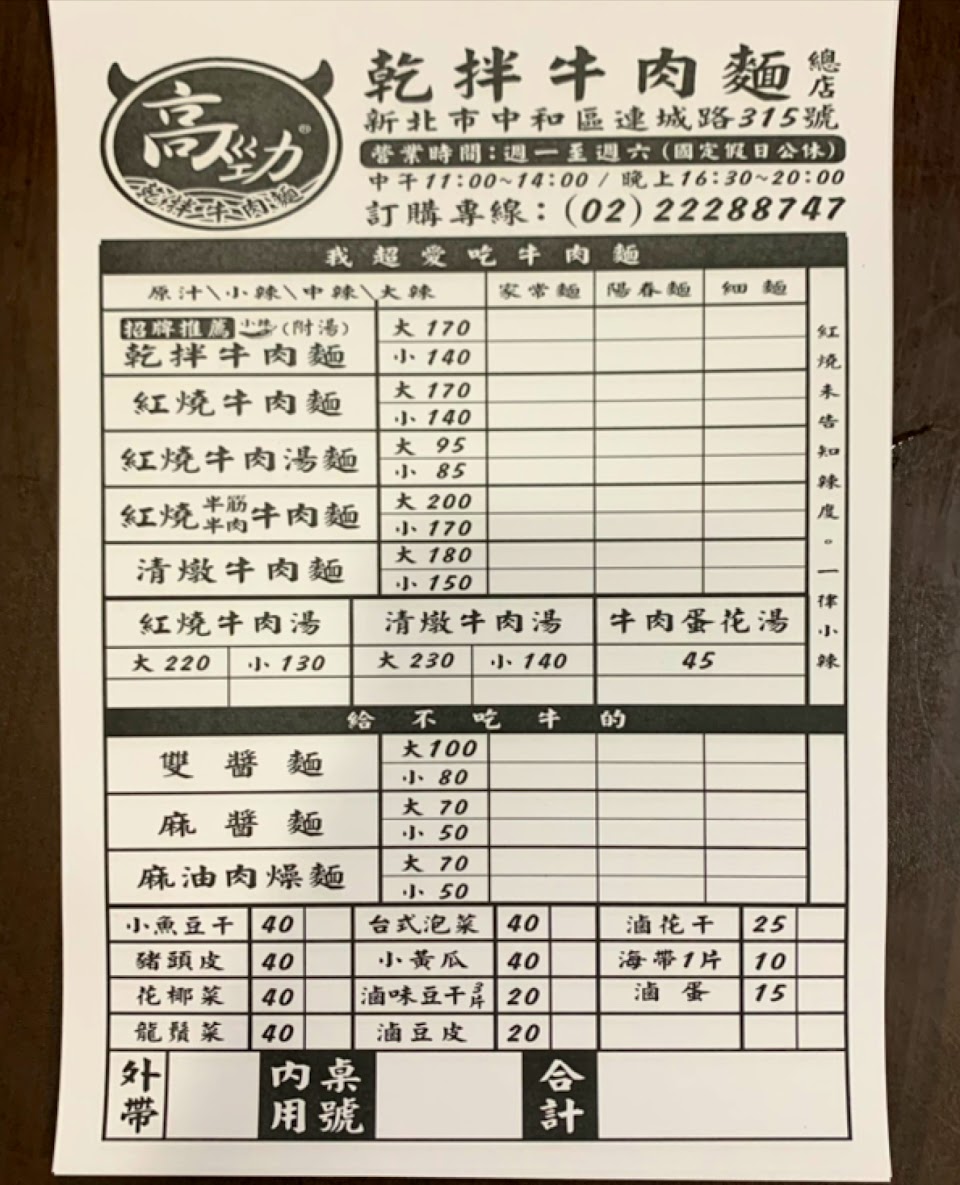 高勁力®
乾拌牛肉麵
乾拌牛肉麵 總店
新北市中和區連城路315號
營業時間：週一至週六（國定假日公休）
中午11:00~14:00 / 晚上16:30~20:00
訂購專線：(02)22288747
我超愛吃牛肉麵
原汁\小辣\中辣\大辣 家常麵 陽春麵 細麵
招牌推薦 小辣（附湯）
乾拌牛肉麵 大 170
小 140
紅燒牛肉麵 大 170
小 140
紅燒牛肉湯麵 大 95
小 85
紅燒半筋半肉牛肉麵 大 200
小 170
清燉牛肉麵 大 180
小 150
紅燒未告知辣度。一律小辣
紅燒牛肉湯 清燉牛肉湯 牛肉蛋花湯
大 220 小 130 大 230 小 140 45
給不吃牛的
雙醬麵 大 100
小 80
麻醬麵 大 70
小 50
麻油肉燥麵 大 70
小 50
小魚豆干 40 台式泡菜 40 滷花干 25
豬頭皮 40 小黃瓜 40 海帶1片 10
花椰菜 40 滷味豆干3片 20 滷蛋 15
龍鬚菜 40 滷豆皮 20
外帶 內用 桌號 合計